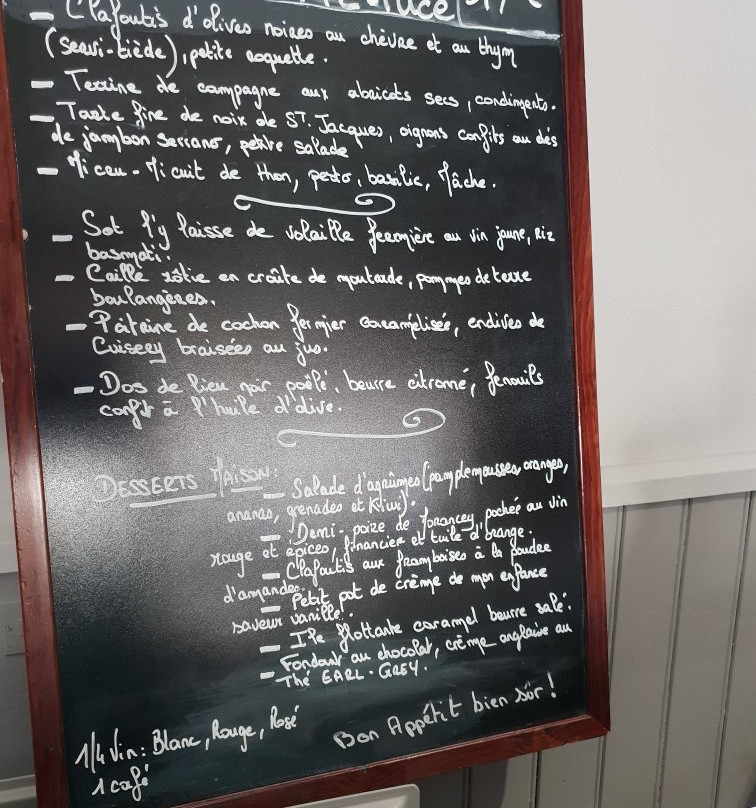 - Clafoutis d'olives noires au chèvre et au thym
(servi-tiède), petite roquette.
- Terrine de campagne aux abricots secs, condiments.
- Tarte fine de noix de ST. Jacques, oignons confits au dés
de jambon Serrano, petite salade
- Mi ceu - Mi cuit de thon, pesto, basilic, Mâche.
- Sot l'y laisse de volaille fermière au vin jaune, Riz
basmati.
- Caille rôtie en croûte de moutarde, pommes de terre
boulangères.
- Poitrine de cochon fermier caramélisée, endives de
Cuisery braisées au jus.
- Dos de lieu noir poêlé, beurre citronné, fenouils
confit à l'huile d'olive.
DESSERTS MAISON:
- Salade d'agrumes (pamplemousses, oranges,
ananas, grenades et Kiwi).
- Demi-poire de Jorancey, pochée au vin
rouge et épices, financier et tuile d'orange.
- Clafoutis aux framboises à la poudre
d'amandes.
- Petit pot de crème de mon enfance
saveur vanille.
- Ile flottante caramel beurre salé.
- Fondant au chocolat, crème anglaise au
Thé EARL-GREY.
1/4 Vin: Blanc, Rouge, Rosé
1 café
Bon Appétit bien sûr!